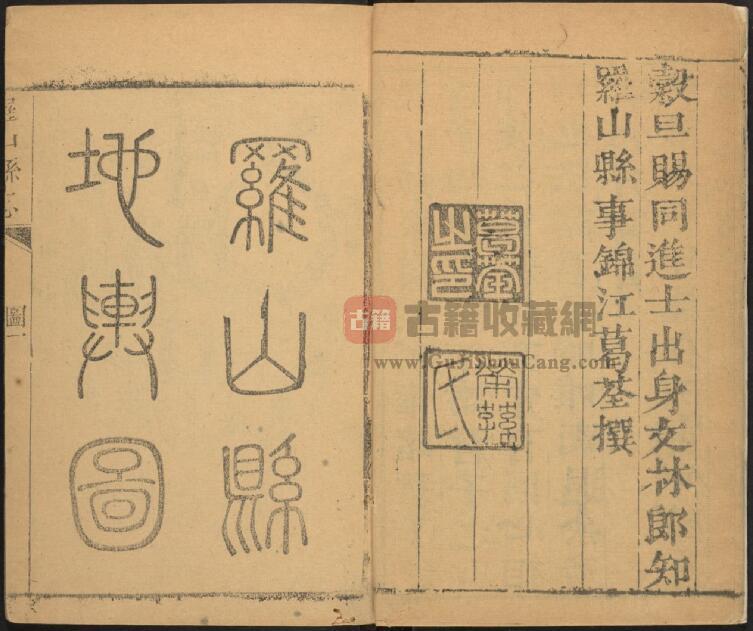 穀旦賜同進士出身文林郎知
羅山縣事錦江葛荃撰
葛荃之印
氏
羅山縣
地輿圖
羅山縣志
圖一
古籍
古籍收藏網
www.GuJiShouCang.com